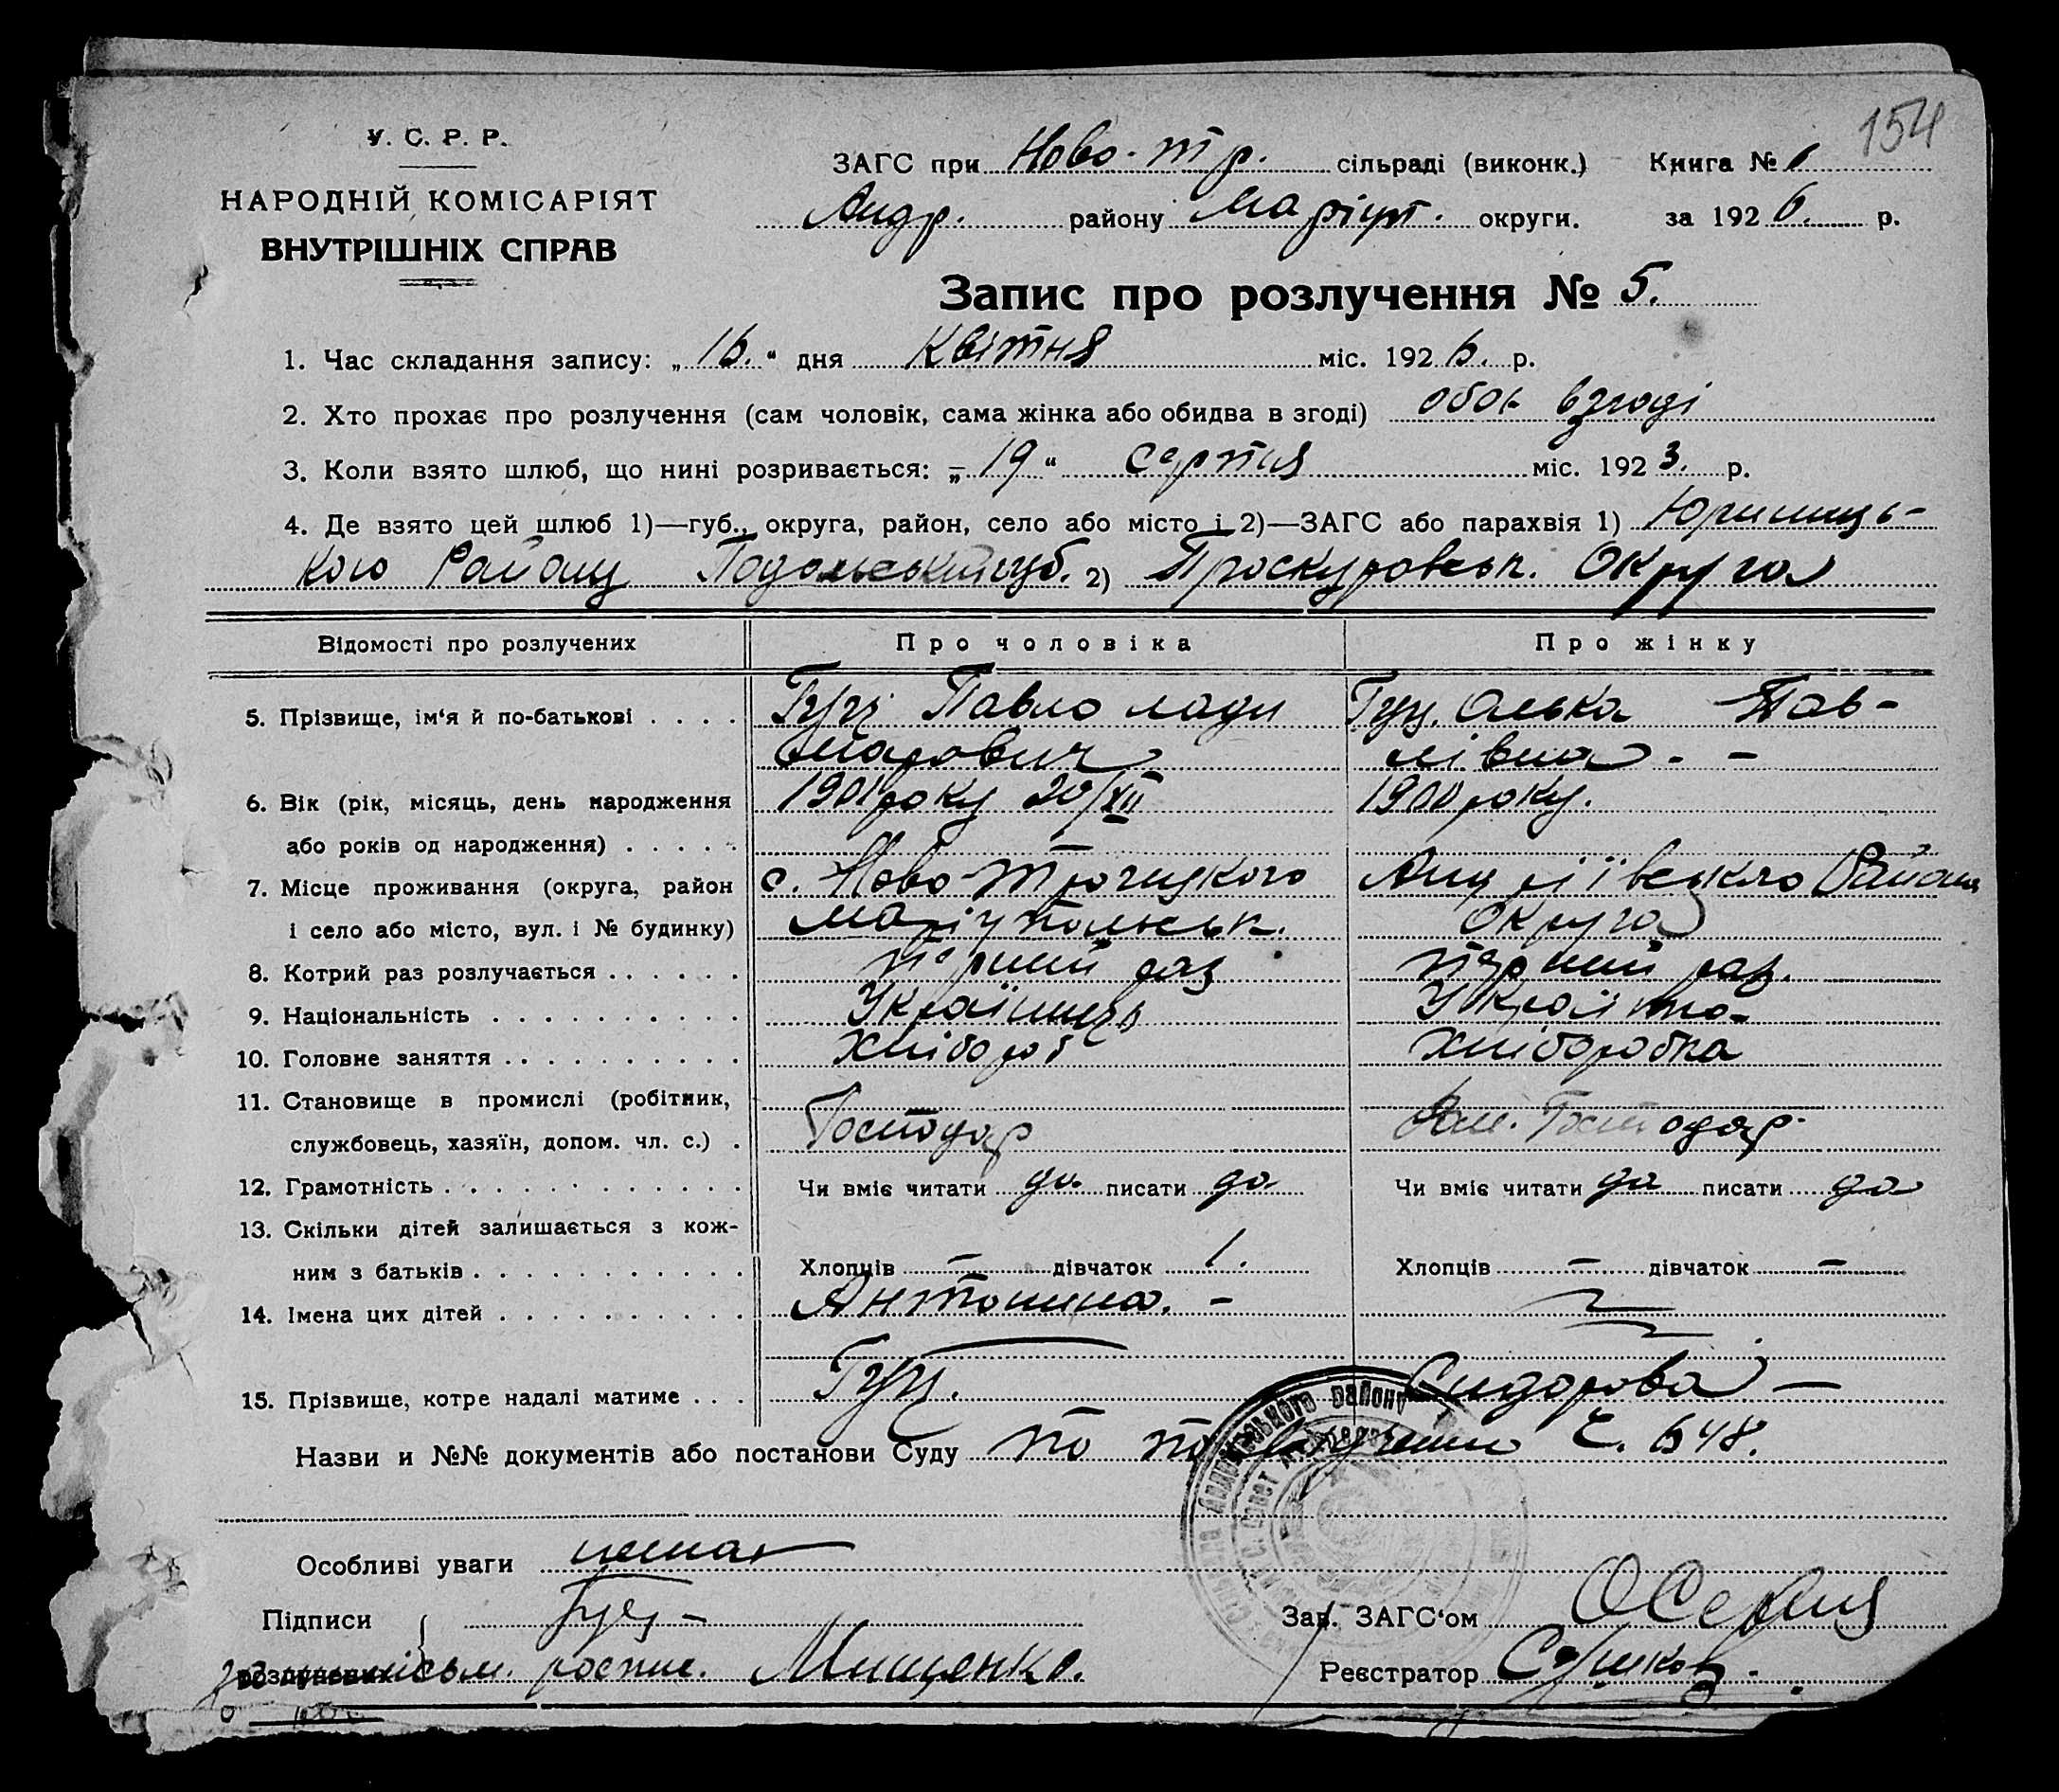 154
У. С. Р. Р.
НАРОДНІЙ КОМІСАРІЯТ
ВНУТРІШНІХ СПРАВ
ЗАГС при Ново-тр. сільраді (виконк.) Книга №
Андр. району Маріуп. округи. за 1926. р.
Запис про розлучення № 5.
1. Час складання запису: „16.“ дня Квітня міс. 1926. р.
2. Хто прохає про розлучення (сам чоловік, сама жінка або обидва в згоді) обоє взгоді
3. Коли взято шлюб, що нині розривається: „19“ серпня міс. 1923. р.
4. Де взято цей шлюб 1)—губ., округа, район, село або місто і 2)—ЗАГС або парахвія 1) Юринець-
кого Району Подольської губ. 2) Проскуровськ. Округа
Відомості про розлучених Про чоловіка Про жінку
5. Прізвище, ім‘я й по-батькові . . . . Гуц Павло Гуц. Олька Пав-
лівна. -
6. Вік (рік, місяць, день народження 1901 року 20/XII 1900 року.
або років од народження) . . . . .
7. Місце проживання (округа, район с. Ново-Троицкого Андріївського Району
і село або місто, вул. і № будинку) Маріупольськ. Округа
8. Котрий раз розлучається . . . . . . перший раз перший раз.
9. Національність . . . . . . . . . . Українець Українка
10. Головне заняття . . . . . . . . . . Хлібороб Хліборобка
11. Становище в промислі (робітник,
службовець, хазяїн, допом. чл. с.) . Господар Господар.
12. Грамотність . . . . . . . . . . . . Чи вміє читати да писати да Чи вміє читати да писати да
13. Скільки дітей залишається з кож-
ним з батьків . . . . . . . . . . . . Хлопців — дівчаток 1. Хлопців — дівчаток —
14. Імена цих дітей . . . . . . . . . . Антонина. -
15. Прізвище, котре надалі матиме . . . Гуц. Сидорова —
Назви и №№ документів або постанови Суду по Ч. 648.
Особливі уваги немає
Підписи Гуц - Зав. ЗАГС‘ом
розлучених роспис. Мищенко. Реєстратор